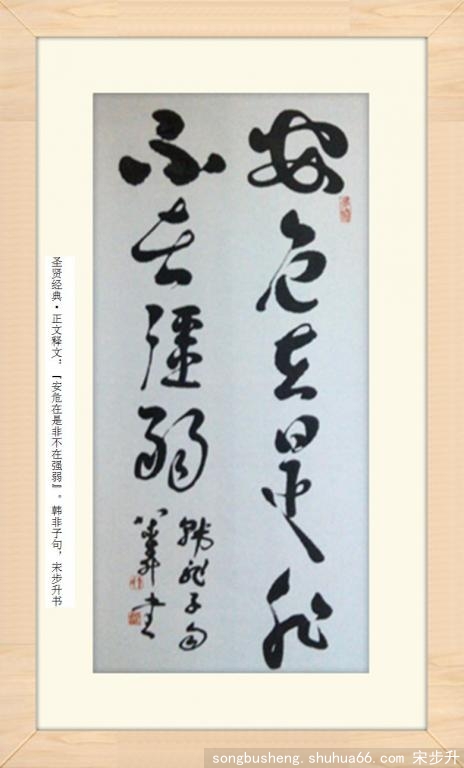 安危在是非
不在强弱
韩非子句
圣贤经典·正文释文：『安危在是非不在强弱』。韩非子句，宋步升书
songbusheng.shuhua66.com 宋步升